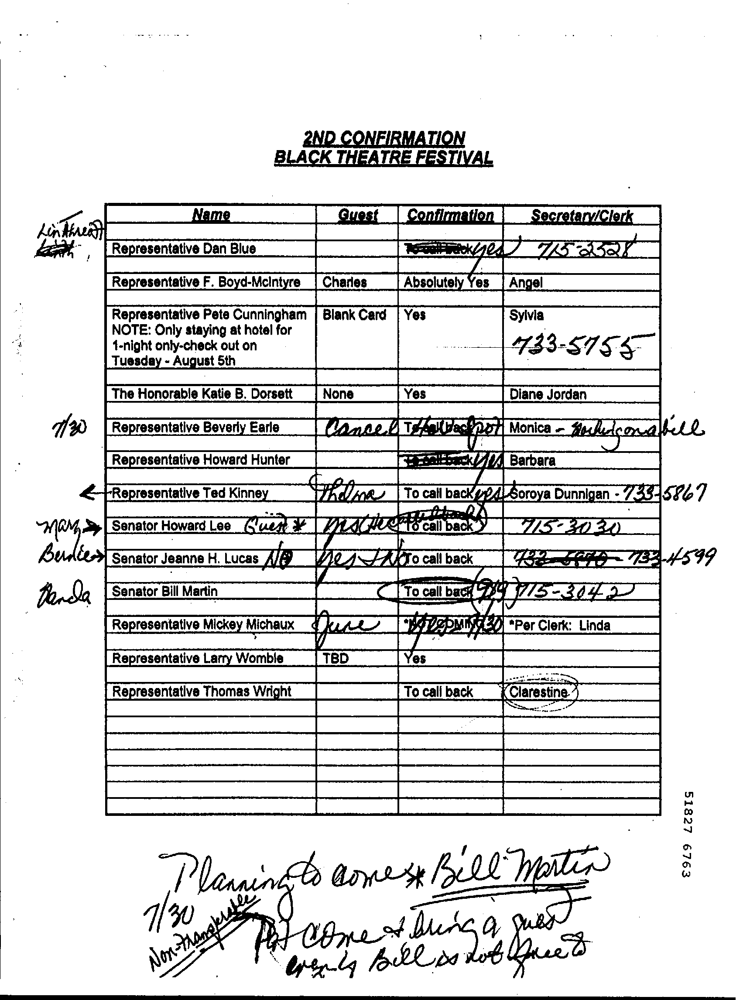 2ND CONFIRMATION
BLACK THEATRE FESTIVAL
Name Guest Confirmation Secretary/Clerk
Representative Dan Blue To call back yes 715-2528
Representative F. Boyd-McIntyre Charles Absolutely Yes Angel
Representative Pete Cunningham Blank Card Yes Sylvia
NOTE: Only staying at hotel for
1-night only-check out on 733-5755
Tuesday - August 5th
The Honorable Katie B. Dorsett None Yes Diane Jordan
7/30 Representative Beverly Earle Cancel Monica - Working on a bill
Representative Howard Hunter To call back yes Barbara
Representative Ted Kinney Thelma To call back yes Soroya Dunnigan - 733-5867
Mary Senator Howard Lee Guest * yes To call back 715-3030
Bernice Senator Jeanne H. Lucas NO yes To call back 733-4599
Senator Bill Martin To call back (919) 715-3042
Representative Mickey Michaux June 7/30 *Per Clerk: Linda
Representative Larry Womble TBD Yes
Representative Thomas Wright To call back Clarestine
51827 6763
Planning to come * Bill Martin
7/30
Non-Transferable
come & bring a guest
Bill is not free to